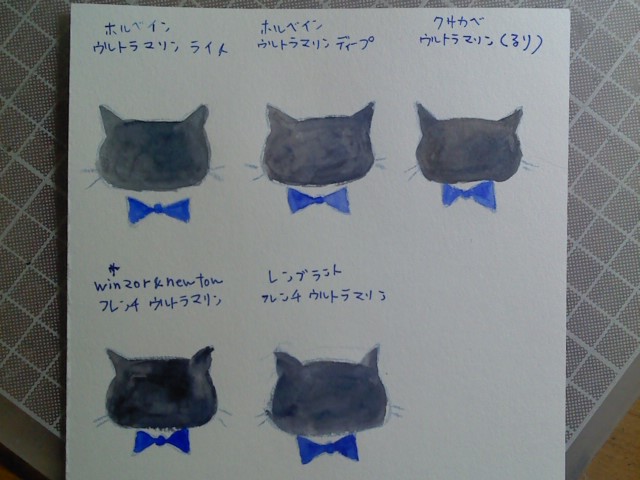 ホルベイン
ウルトラマリン ライト
ホルベイン
ウルトラマリン ディープ
クサカベ
ウルトラマリン(るり)
*
winzor&newton
フレンチ ウルトラマリン
レンブラント
フレンチ ウルトラマリン